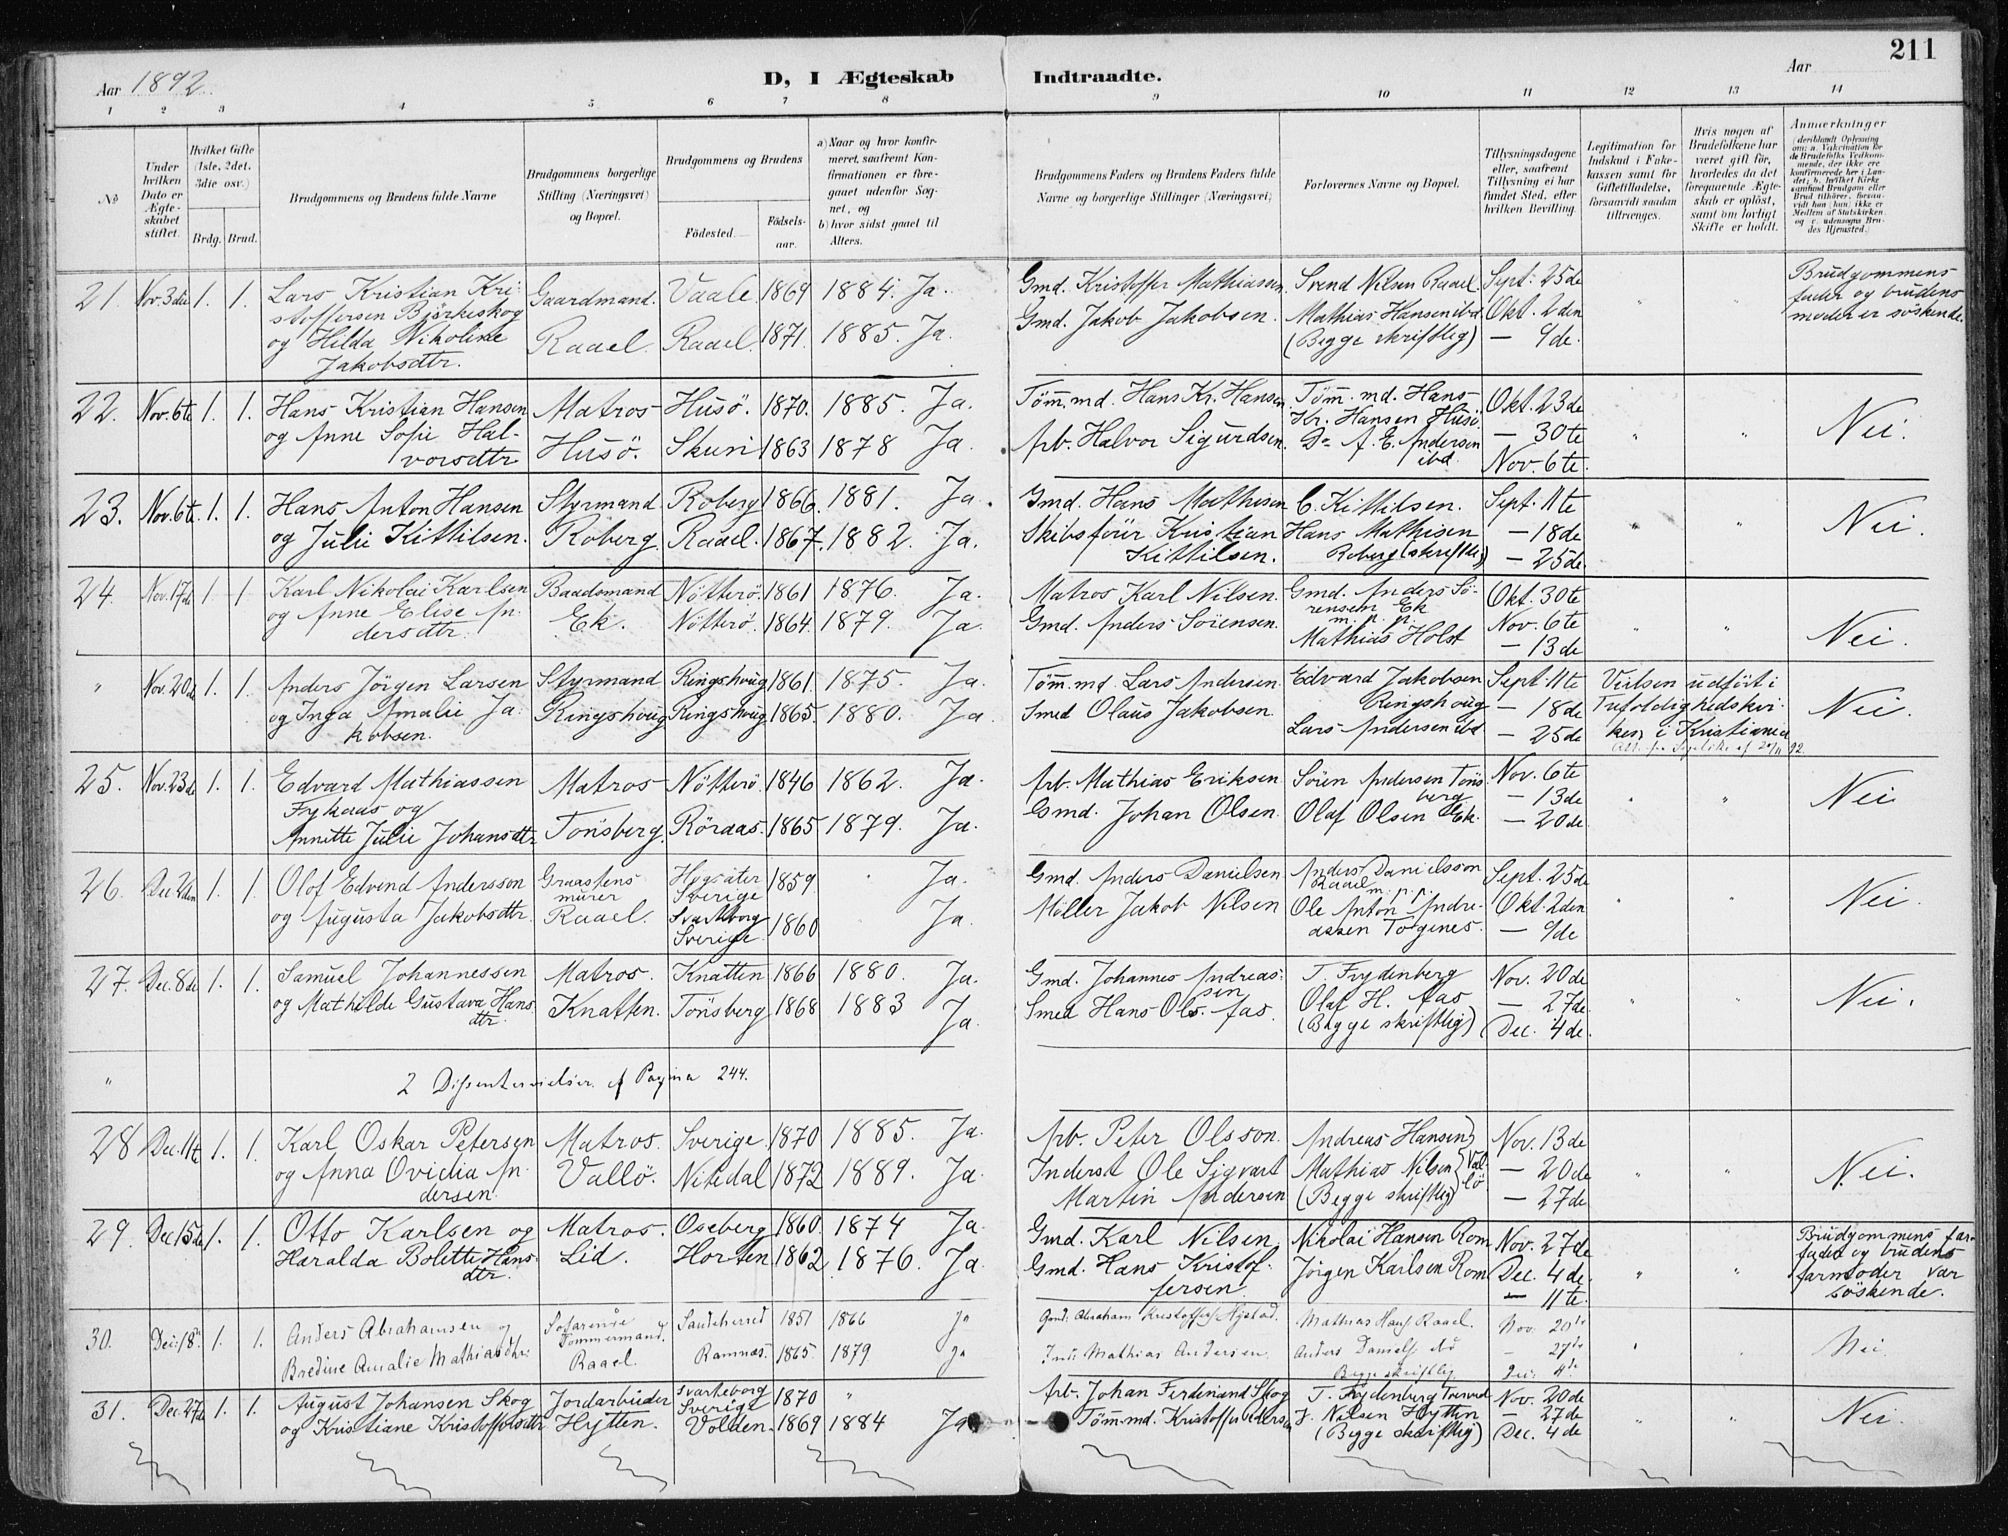 Aar 1892.
D, I Ægteskab Indtraadte.
Aar
211
1 2 3 4 5 6 7 8 9 10 11 12 13 14
No
Under hvilken Dato er Ægteskabet stiftet.
Hvilket Gifte (1ste, 2det, 3die osv.)
Brdg. Brud.
Brudgommens og Brudens fulde Navne
Brudgommens borgerlige Stilling (Næringsvei) og Bopæl.
Brudgommens og Brudens
Födested.
Födselsaar.
a) Naar og hvor konfirmeret, saafremt Konfirmationen er foregaaet udenfor Sognet, og
b) hvor sidst gaaet til Alters.
Brudgommens Faders og Brudens Faders fulde Navne og borgerlige Stillinger (Næringsvei)
Forlovernes Navne og Bopæl.
Tillysningsdagene eller, saafremt Tillysning ei har fundet Sted, efter hvilken Bevilling.
Legitimation for Indskud i Enkekassen samt for Giftetilladelse, forsaavidt saadan tiltrænges.
Hvis nogen af Brudefolkene har været gift för, hvorledes da det foregaaende Ægteskab er oplöst, samt om lovligt Skifte er holdt.
Anmærkninger (deriblandt Oplysning om: a. Vaccination for de Brudefolks Vedkommende, der ikke ere konfirmerede her i Landet; b. hvilket Kirkesamfund Brudgom eller Brud tilhörer, forsaavidt han (hun) ikke er Medlem af Statskirken og c. udensogns Brudes Hjemsted.)
21. Nov. 3die 1. 1. Lars Kristian Kri- Gaardmand. Vaale 1869 1884. Ja. Gmd. Kristoffer Mathiassen. Svend Nilsen Raael. Sept. 25de " " Brudgommens
stoffersen Bjerkeskog fader og brudens
og Hilda Nikoline Raael. Raael. 1871. 1885. Ja. Gmd. Jakob Jakobsen. Mathias Hansen ibd. Okt. 2den moder er söskende.
Jakobsdtr. (Begge skriftlig) — 9de.
22. Nov. 6te 1. 1. Hans Kristian Hansen Matros Husö. 1870. 1885. Ja. Töm̄.md. Hans Kr. Hansen Töm̄.md. Hans Okt. 23de " " Nei.
og Anne Sofie Hal- Husö. Skuri 1863 1878 Ja. Arb. Halvor Sigurdsen. Kr. Hansen Husö — 30te
vorsdtr. Do A. E. Andersen ibd. Nov. 6te.
23. Nov. 6te. 1. 1. Hans Anton Hansen Styrmand Roberg 1866. 1881. Ja. Gmd. Hans Mathisen C. Kittilsen. Sept. 11te " " Nei.
og Julie Kittilsen. Roberg Raael. 1867. 1882. Ja. Skibsförer Kristian Hans Mathisen — 18de
Kittilsen. Roberg (skriftlig) — 25de
24. Nov. 17de 1. 1. Karl Nikolai Karlsen Baadsmand Nötterö. 1861 1876. Ja. Matros Karl Nilsen. Gmd. Anders Sö- Okt. 30te " " Nei.
og Anne Elise An- Ek. Nötterö. 1864 1879. Ja. Gmd. Anders Sörensen. rensen Ek m. p. p. Nov. 6te
dersdtr. Mathias Holst — 13de
" Nov. 20de 1. 1. Anders Jörgen Larsen Styrmand Ringshoug 1861. 1875. Ja. Töm̄.md. Lars Andersen. Edvard Jakobsen Sept. 11te Vielsen udfört i Nei.
og Inga Amalie Ja- Ringshoug Ringshoug 1865. 1880. Ja. Smed Olaus Jakobsen. Ringshoug — 18de Trefoldighedskir-
kobsen. Lars Andersen ibd. — 25de ken i Kristiania
25. Nov. 23de 1. 1. Edvard Mathiassen Matros Nötterö 1846 1862. Ja. Arb. Mathias Eriksen Sören Andersen Töns- Nov. 6te " " Nei
Frykaas og berg — 13de
Annette Julie Johansdtr. Tönsberg. Röraas. 1865 1879. Ja. Gmd. Johan Olsen. Olaf Olsen Ek. — 20de
26. Dec. 2den 1. 1. Olof Edvend Andersson Graastens- Högsäter 1859. " Ja. Gmd. Anders Danielsen Anders Danielsson Sept. 25de " " Nei.
murer Sverige Raael m. p. p.
og Augusta Jakobsdtr. Raael. Svarteborg 1860 " Ja. Möller Jakob Nilsen Ole Anton Andre- Okt. 2den
Sverige. assen Torgines. — 9de
27. Dec. 8de 1. 1. Samuel Johannessen Matros. Knatten 1866 1880. Ja. Gmd. Johannes Andreas- T. Frydenberg Nov. 20de " " Nei.
sen
og Mathilde Gustava Hans- Knatten. Tönsberg 1868 1883 Ja. Smed Hans Ols. Aas. Olaf H. Aas — 27de
dtr. (Begge skriftlig) Dec. 4de.
" 2 Dissentervielser cf Pagina 244.
28 Dec. 11te 1. 1. Karl Oskar Petersen Matros. Sverige. 1870 1885. Ja. Arb. Peter Olsson. Andreas Hansen Nov. 13de " " Nei.
og Anna Ovidia An- Vallö. Nitedal 1872 1889. Ja. Inderst Ole Sigvart Mathias Nilsen Vallö — 20de
dersen. Martin Andersen (Begge skriftlig) — 27de
29. Dec. 15de 1. 1. Otto Karlsen og Matros. Oseberg 1860. 1874 Ja. Gmd. Karl Nilsen Nikolai Hansen Rom Nov. 27de " " Brudgommens far-
fader og brudens
Haralda Bolette Hans- Lid. Horten 1862 1876. Ja. Gmd. Hans Kristof- Jörgen Karlsen Rom Dec. 4de farmoder var
dtr. fersen. — 11te. söskende.
30. Dec. 18de 1. 1. Anders Abrahamsen og Söfarende Sandeherred 1851 1866 Ja Gmd. Abraham Kristoffers. Mathias Hans. Raael. Nov. 20de " " Nei.
Tömmermand.
Bredine Amalie Mathiasdtr. Raael. Ramnæs. 1865. 1879 Ja Ind. Mathias Andersen. Anders Daniels. ibd — 27de
Begge skriftlig Dec. 4de
31. Dec. 27de 1. 1. August Johansen Skog Jordarbeider Svarteborg 1870 " Arb. Johan Ferdinand Skog T. Frydenberg Nov. 20de " " Nei.
Sverige
og Kristiane Kristoffersdtr. Hytten. Volden. 1869 1884 Ja Töm̄.md. Kristoffer Pedersen J. Nilsen Hytten — 27de
(Begge skriftlig) Dec. 4de